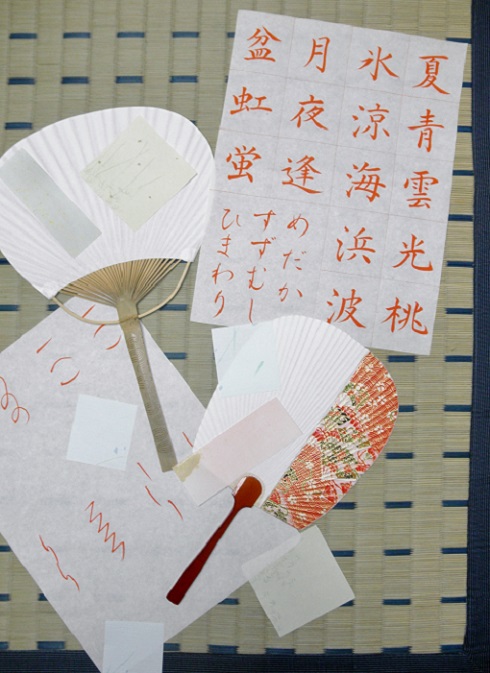 夏青雲光桃
氷涼海浜波
月夜逢
盆虹蛍
めだか
すずむし
ひまわり